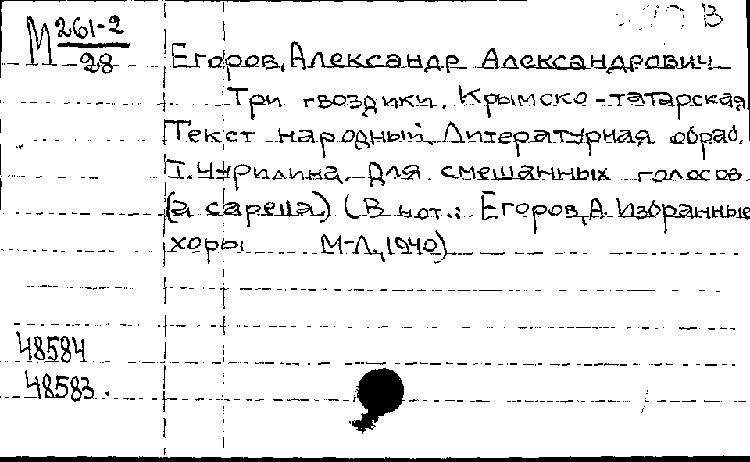 М 261-2
28
В
Егоров, Александр Александрович
Три гвоздики. Крымско-татарская
Текст народный. Литературная обраб.
Т. Чурилина. Для смешанных голосов
(a capella) (В нот.: Егоров, А. Избранные
хоры М-Л, 1940)
48584
48583.